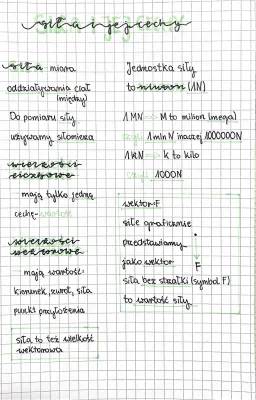 siła i jej cechy
siła miara
oddziaływania ciał
(między)
Do pomiaru siły
używamy siłomierza
wielkości
skalarne
mają tylko jedną
cechę - wartość
wielkości
wektorowe
mają wartość,
kierunek, zwrot, siła
punkt przyłożenia
siła to też wielkość
wektorowa
Jednostka siły
to niuton (1N)
1 MN => M to milion (mega)
czyli 1 mln N inaczej 1000000N
1 kN => k to kilo
czyli 1000N
wektor F
siłę graficznie
przedstawiamy
jako wektor F
siła bez strzałki (symbol F)
to wartość siły